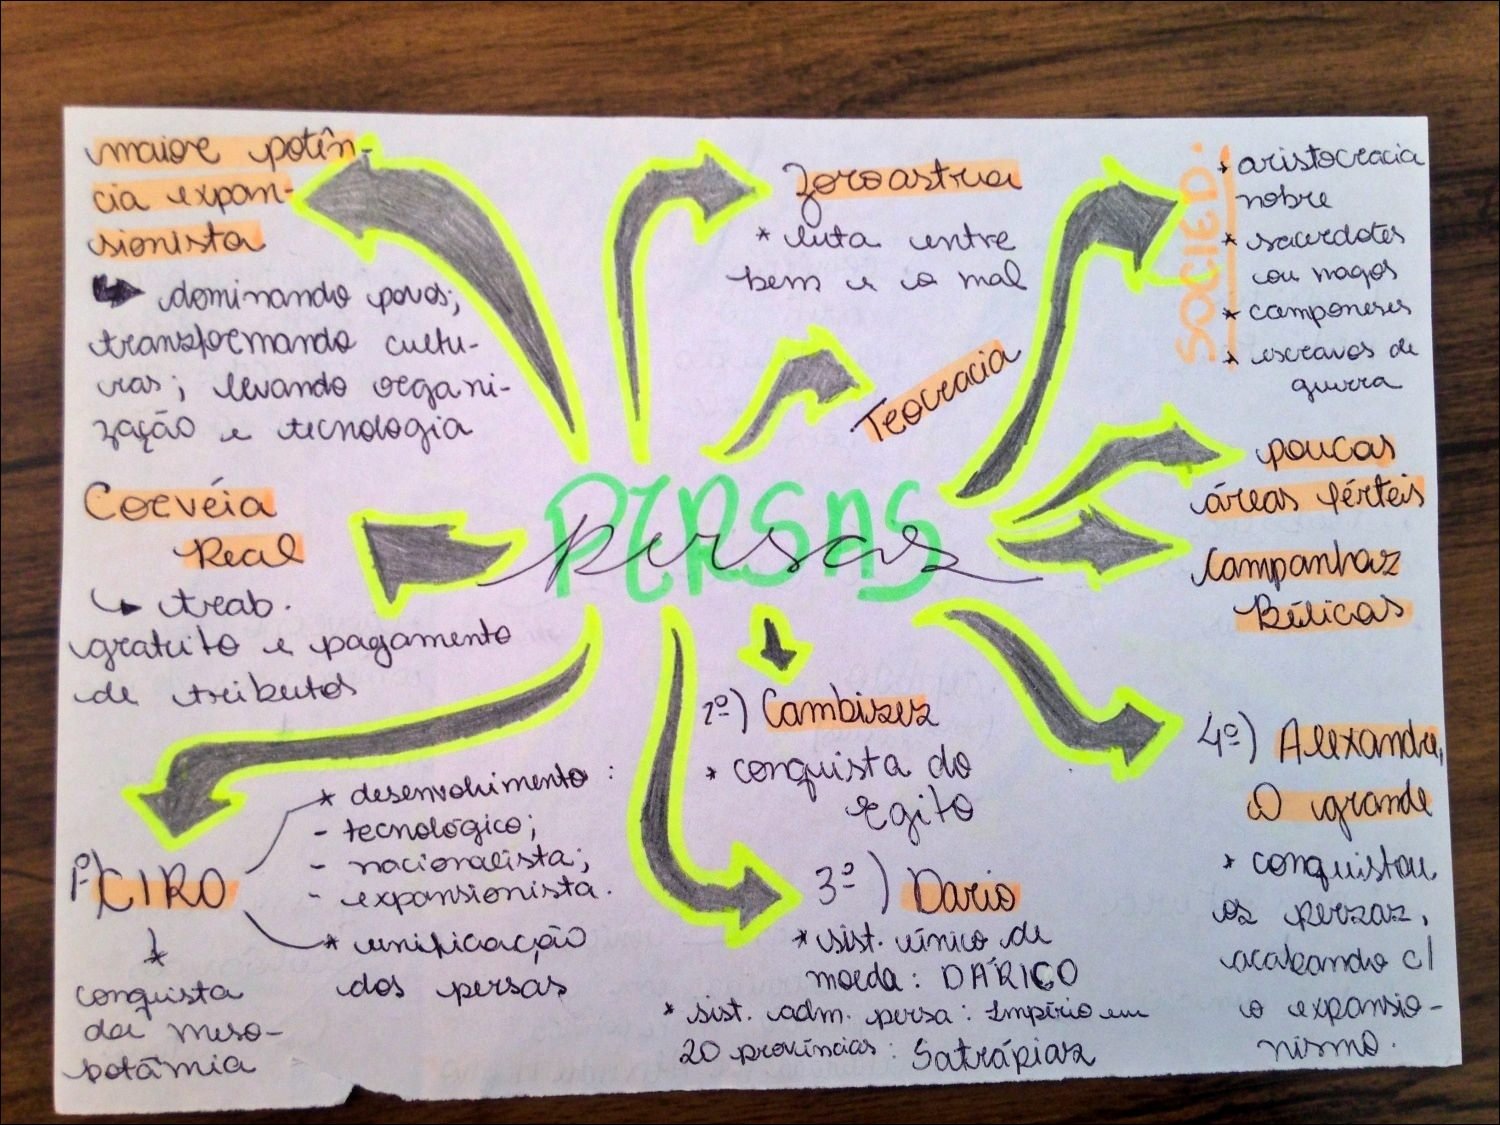 maior potên-
cia expan-
sionista
dominando povos;
transformando cultu-
ras; levando organi-
zação e tecnologia
Zoroastria
* luta entre
bem e o mal
Teocracia
SOCIED.
* aristocracia
nobre
* sacerdotes
ou magos
* camponeses
* escravos de
guerra
poucas
áreas férteis
Campanhas
Bélicas
PERSAS
persas
Corvéia
Real
trab.
gratuito e pagamento
de tributos
1º) CIRO
* desenvolvimento:
- tecnológico;
- nacionalista;
- expansionista.
* unificação
dos persas
conquista
da meso-
potâmia
2º) Cambises
* conquista do
Egito
3º) Dario
* sist. único de
moeda: DÁRICO
* sist. adm. persa: Império em
20 províncias: Satrápias
4º) Alexandre,
O grande
* conquistou
os persas,
acabando c/
o expansio-
nismo.